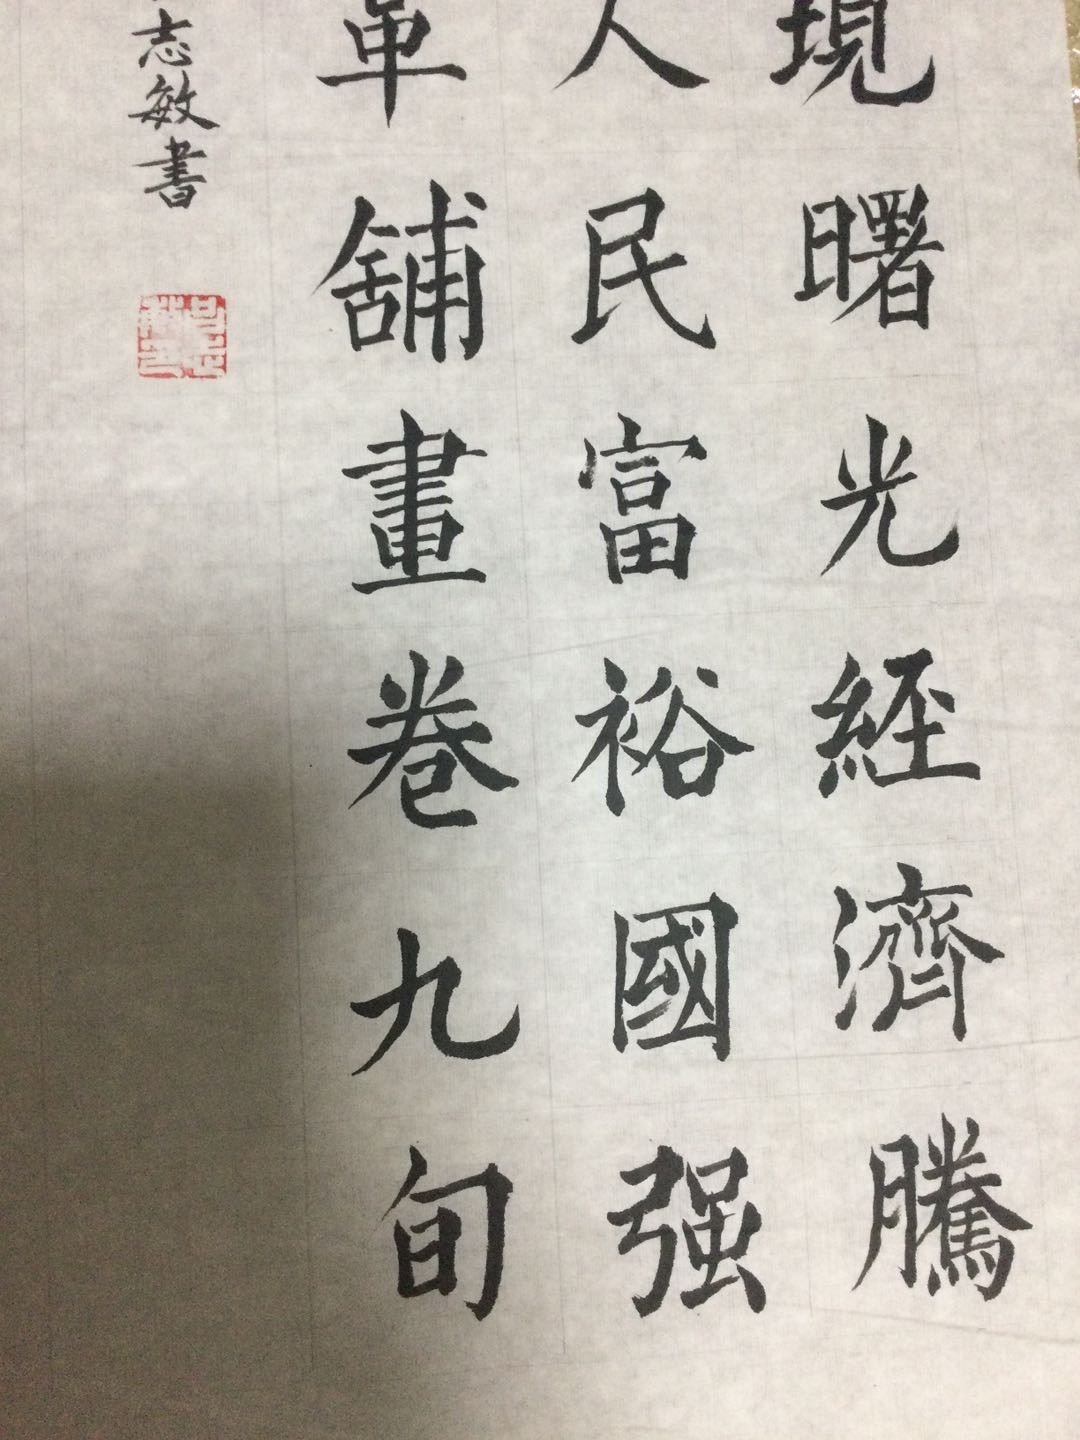 現曙光經濟騰
人民富裕國强
革舖畫卷九旬
志敏書